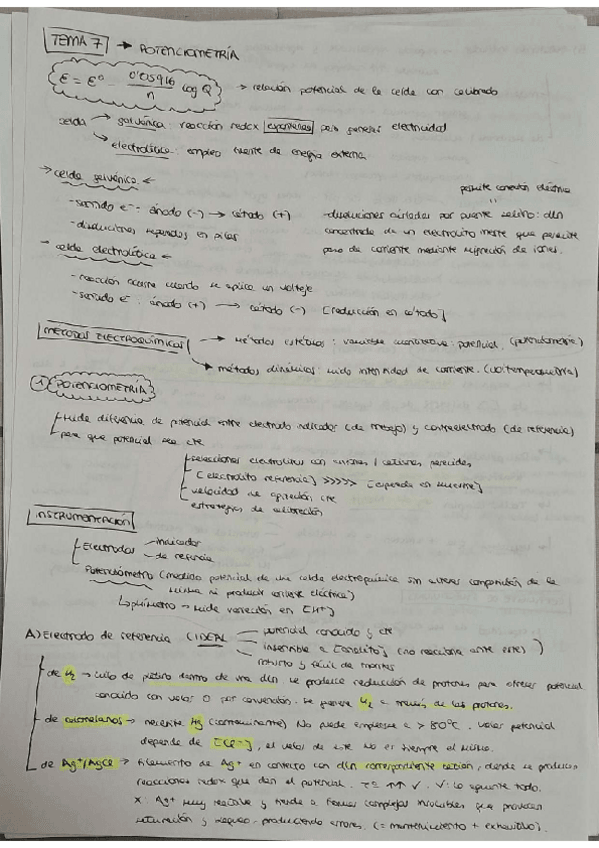 TEMA 7 → POTENCIOMETRÍA
E = E⁰ - 0'05916/n log Q → relación potencial de la celda con
celda → galvánica: reacción redox espontánea para generar electricidad
→ electrolítica: empleo fuente de energía externa
→ celda galvánica ←
permite conexión eléctrica
- sentido e⁻ - ánodo (-) → cátodo (+)
- disoluciones separadas en pilas
- disoluciones aisladas por puente salino: dln
concentrada de un electrolito inerte que permite
paso de corriente mediante migración de iones.
→ celda electrolítica ←
- reacción ocurre cuando se aplica un voltaje
- sentido e⁻: ánodo (+) → cátodo (-) [reducción en cátodo]
MÉTODOS ELECTROQUÍMICOS → Métodos estáticos: variable : potencial. (potenciometría)
→ métodos dinámicos: mido intensidad de corriente. (voltamperometría)
1 POTENCIOMETRÍA
Mide diferencia de potencial entre electrodo indicador (de trabajo) y contraelectrodo (de referencia)
para que potencial sea cte
seleccionar electrolitos con aniones / cationes parecidos
[electrolito referencia] >>>>> [especie en muestra]
velocidad de agitación cte
estrategias de calibración
INSTRUMENTACIÓN
Electrodos - indicador
- de referencia
Potenciómetro (medida potencial de una celda electroquímica sin alterar composición de la
misma ni producir corriente eléctrica)
↳ pHmetro → mide variación en [H+]
A) Electrodo de referencia (IDEAL potencial conocido y cte
insensible a [analito] (no reacciona ante este)
robusto y fácil de montar
- de H₂ → de platino dentro de una dln se produce reducción de protones para ofrecer potencial
conocido con valor 0 por convención. Se genera H₂ a través de los protones.
- de calomelanos → necesita Hg (contaminante) No puede emplearse a > 80°C. Valor potencial
depende de [Cl⁻], el valor de este no es siempre el mismo.
- de Ag⁺/AgCl → filamento de Ag⁺ en contacto con dln correspondiente , donde se producen
reacciones redox que dan el potencial. Tª ↑↑ ✓. V: lo aguanta todo.
X: Ag⁺ muy reactiva y tiende a formar complejos insolubles que provocan
saturación y bloqueo, produciendo errores. (= mantenimiento + exhaustivo).